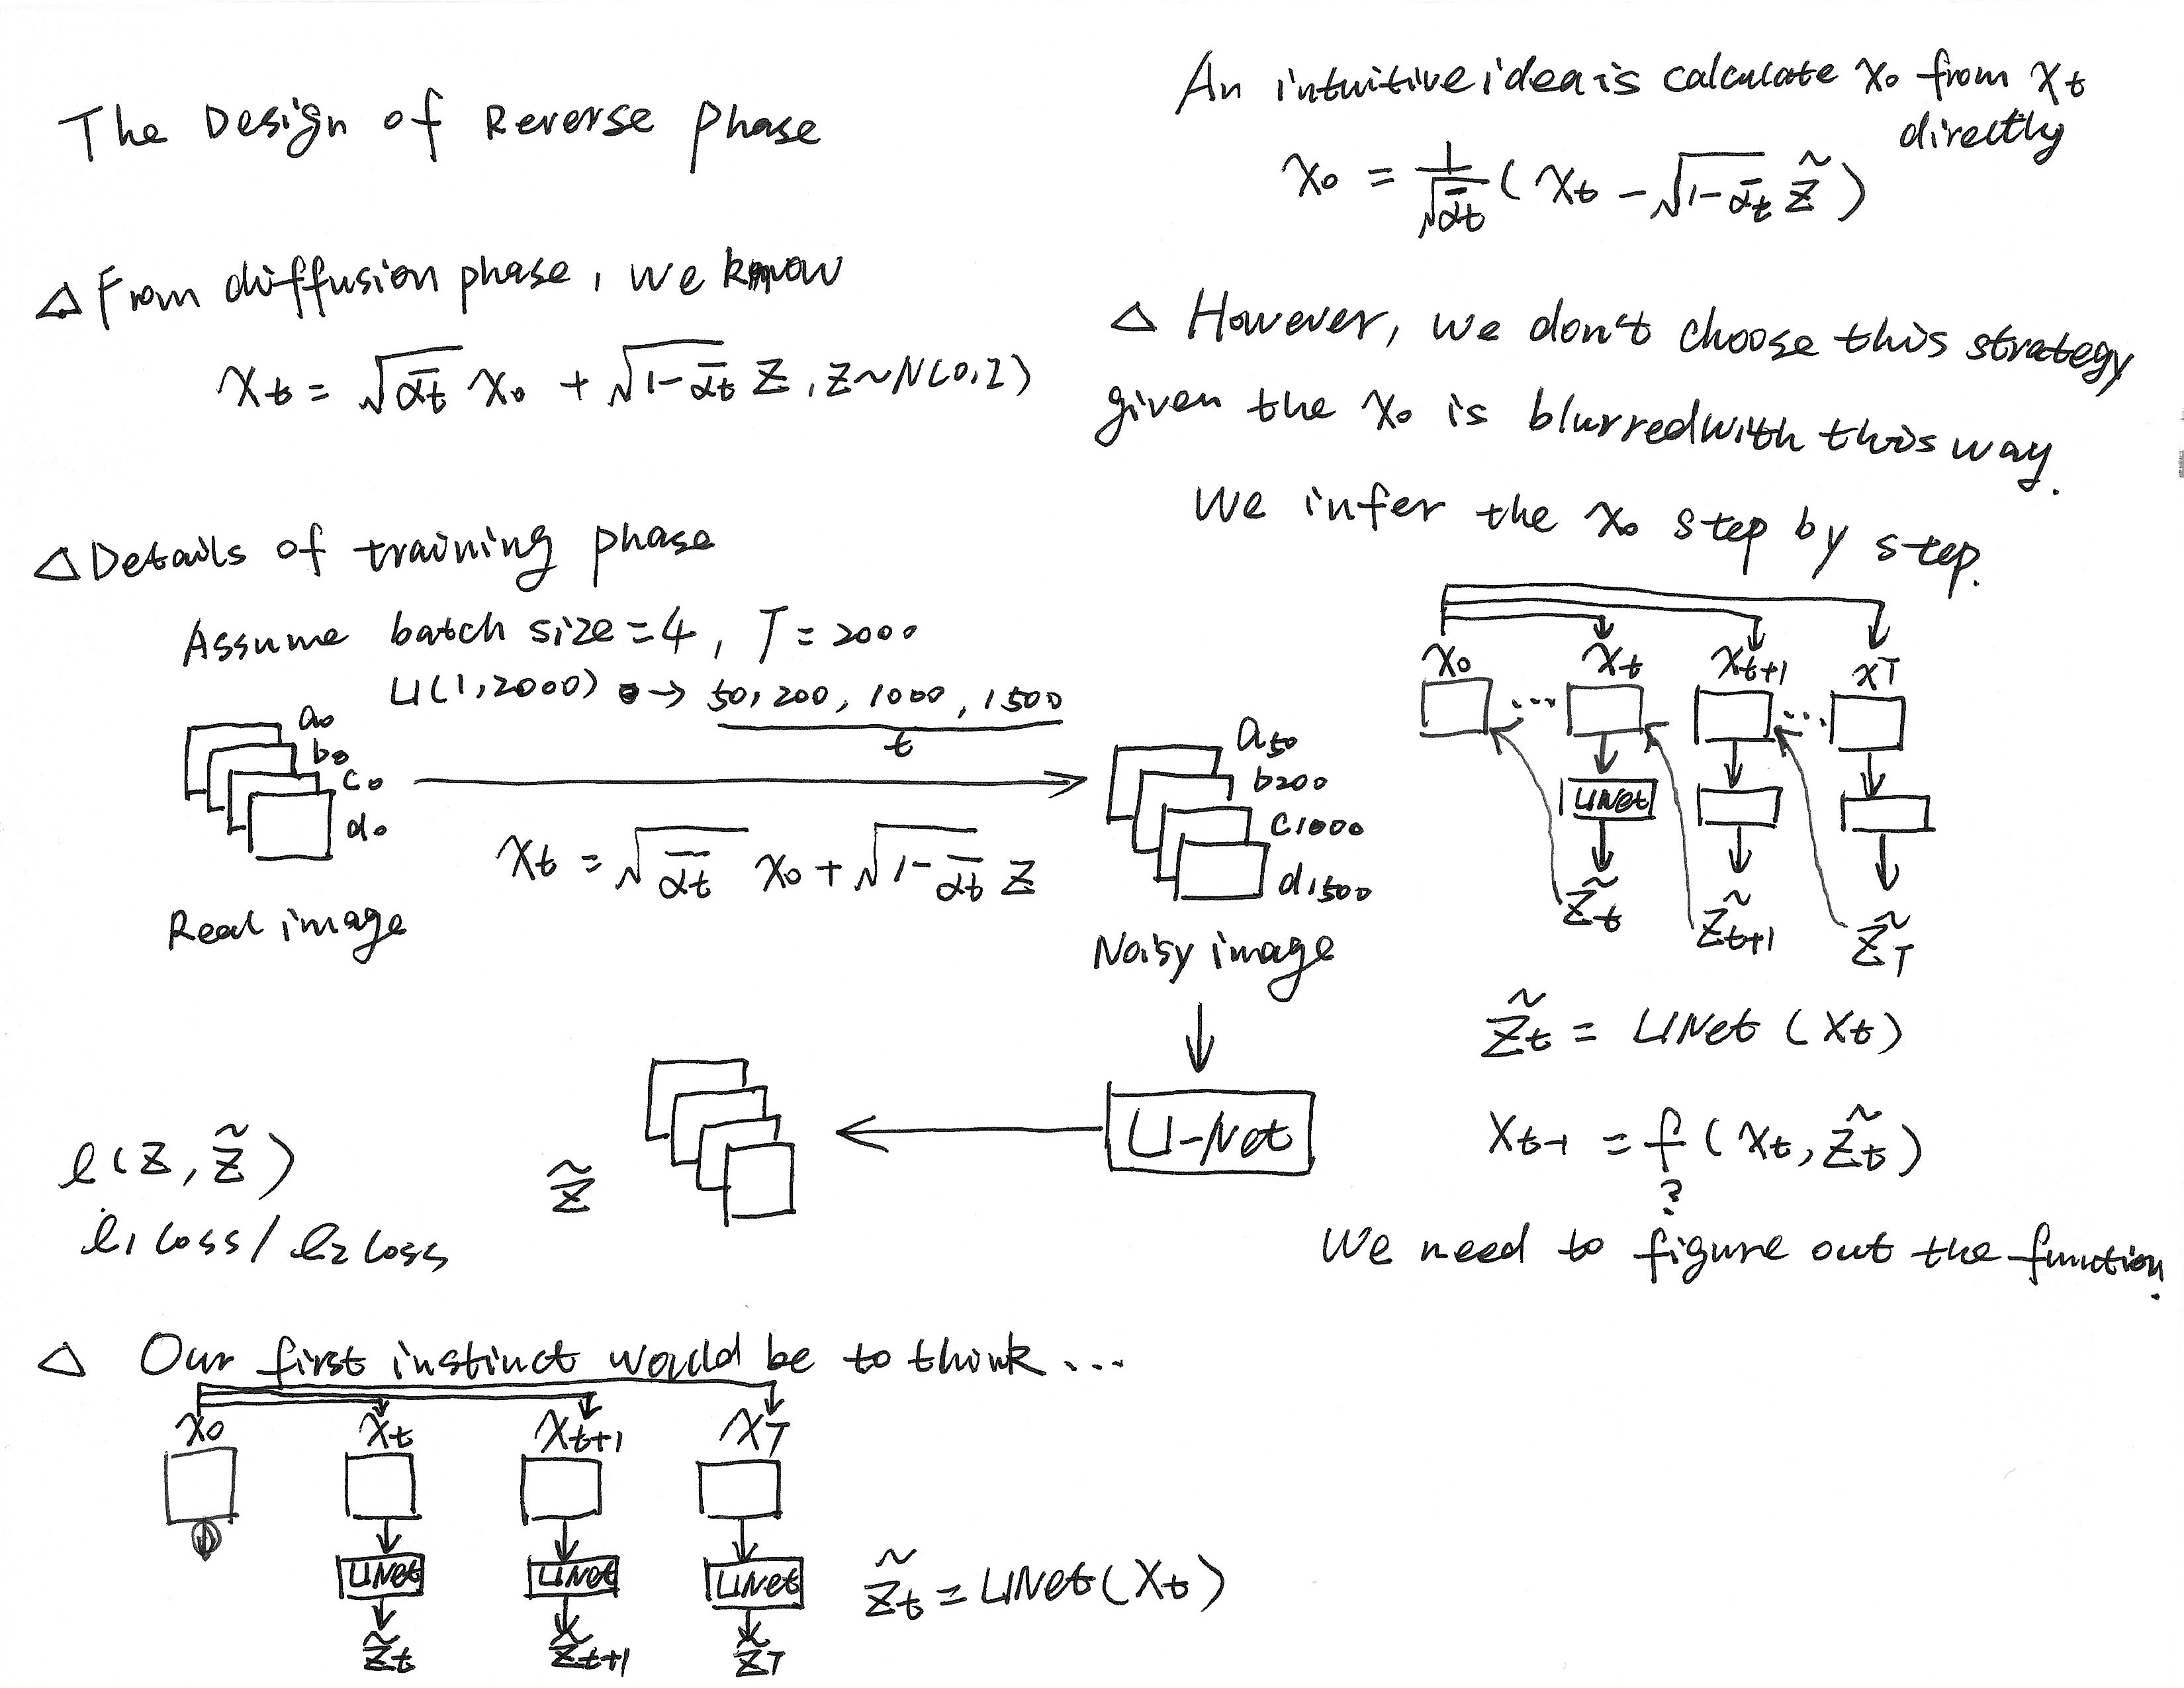 The Design of Reverse phase
△ From diffusion phase, we know
xt = √ᾱt x0 + √1-ᾱt z, z~N(0,I)
△ Details of training phase
Assume batch size = 4, T = 2000
U(1,2000) → 50, 200, 1000, 1500
t
a0
b0
c0
d0
Real image
xt = √ᾱt x0 + √1-ᾱt z
a50
b200
c1000
d1500
Noisy image
U-Net
z̃
l(z, z̃)
l1 loss / l2 loss
△ Our first instinct would be to think ...
x0 xt xt+1 xT
UNet UNet UNet
z̃t z̃t+1 z̃T
z̃t = UNet(Xt)
An intuitive idea is calculate x0 from xt
directly
x0 = 1/√ᾱt (xt - √1-ᾱt z̃)
△ However, we don't choose this strategy
given the x0 is blurred with this way.
We infer the x0 step by step.
x0 xt xt+1 xT
... ...
UNet
z̃t z̃t+1 z̃T
z̃t = UNet (Xt)
Xt-1 = f (xt, z̃t)
?
We need to figure out the function.